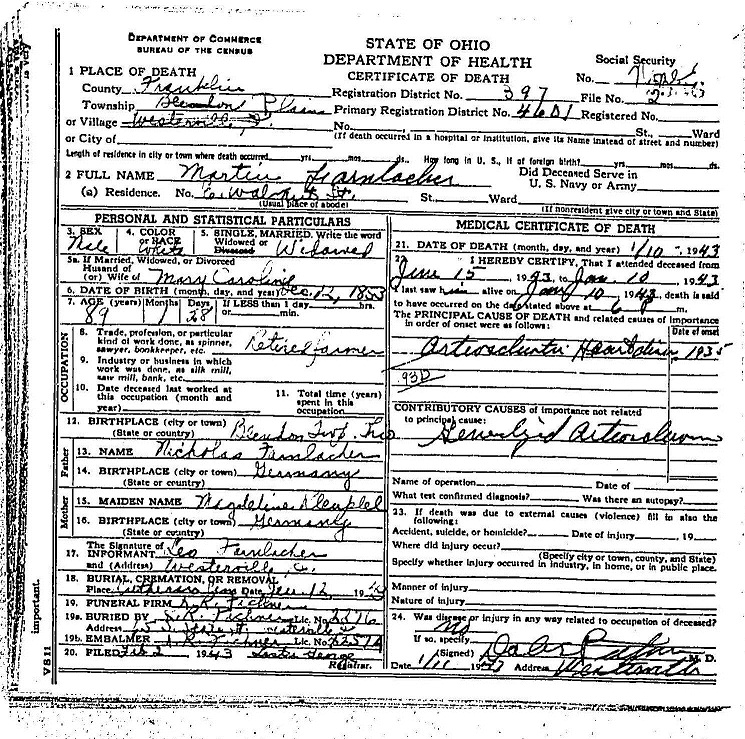 DEPARTMENT OF COMMERCE
BUREAU OF THE CENSUS
STATE OF OHIO
DEPARTMENT OF HEALTH
CERTIFICATE OF DEATH
Social Security
No.
1 PLACE OF DEATH
County Franklin
Registration District No. 397 File No.
Township Blendon Plain Primary Registration District No. 4601 Registered No.
or Village Westerville, O. No. St., Ward
or City of (If death occurred in a hospital or institution, give its Name instead of street and number)
Length of residence in city or town where death occurred yrs. mos. ds. How long in U. S., if of foreign birth? yrs. mos. ds.
2 FULL NAME Martin Farnlacher Did Deceased Serve in
U. S. Navy or Army
(a) Residence. No. E. Walnut St. St. Ward
(Usual place of abode) (If nonresident give city or town and State)
PERSONAL AND STATISTICAL PARTICULARS
3. SEX 4. COLOR or RACE 5. SINGLE, MARRIED. Write the word
Widowed or Divorced
Male White Widowed
5a If Married, Widowed, or Divorced
Husand of
(or) Wife of Mary Caroline
6. DATE OF BIRTH (month, day, and year) Dec. 12, 1853
7. AGE (years) Months Days If LESS than 1 day hrs.
or min.
89 1 28
OCCUPATION
8. Trade, profession, or particular
kind of work done, as spinner,
sawyer, bookkeeper, etc. Retired farmer
9. Industry or business in which
work was done, as silk mill,
saw mill, bank, etc.
10. Date deceased last worked at
this occupation (month and
year)
11. Total time (years)
spent in this
occupation
12. BIRTHPLACE (city or town) Blendon Twp.
(State or country)
Father
13. NAME Nicholas Farnlacher
14. BIRTHPLACE (city or town) Germany
(State or country)
Mother
15. MAIDEN NAME Magdeline
16. BIRTHPLACE (city or town) Germany
(State or country)
The Signature of Leo Farnlacher
17. INFORMANT
and (Address) Westerville O.
18. BURIAL, CREMATION, OR REMOVAL
Place Lutheran Cem Date Jan. 12, 1943
19. FUNERAL FIRM
19a. BURIED BY Lic. No.
Address
19b. EMBALMER Lic. No.
20. FILED Feb 2 1943
Registrar.
MEDICAL CERTIFICATE OF DEATH
21. DATE OF DEATH (month, day, and year) 1/10 - 1943
22. I HEREBY CERTIFY, That I attended deceased from
June 15, 1943, to Jan. 10, 1943
I last saw him alive on Jany 10, 1943, death is said
to have occurred on the date stated above at 6 P m.
THE PRINCIPAL CAUSE OF DEATH and related causes of importance
in order of onset were as follows:
Date of onset
Heart 1935
93D
CONTRIBUTORY CAUSES of importance not related
to principal cause:
Name of operation Date of
What test confirmed diagnosis? Was there an autopsy?
23. If death was due to external causes (violence) fill in also the
following:
Accident, suicide, or homicide? Date of injury 19
Where did injury occur?
(Specify city or town, county, and State)
Specify whether injury occurred in industry, in home, or in public place.
Manner of injury
Nature of injury
24. Was disease or injury in any way related to occupation of deceased?
no
If so, specify
(Signed) M. D.
Date 1/11 1943 Address Westerville
important.
VS11